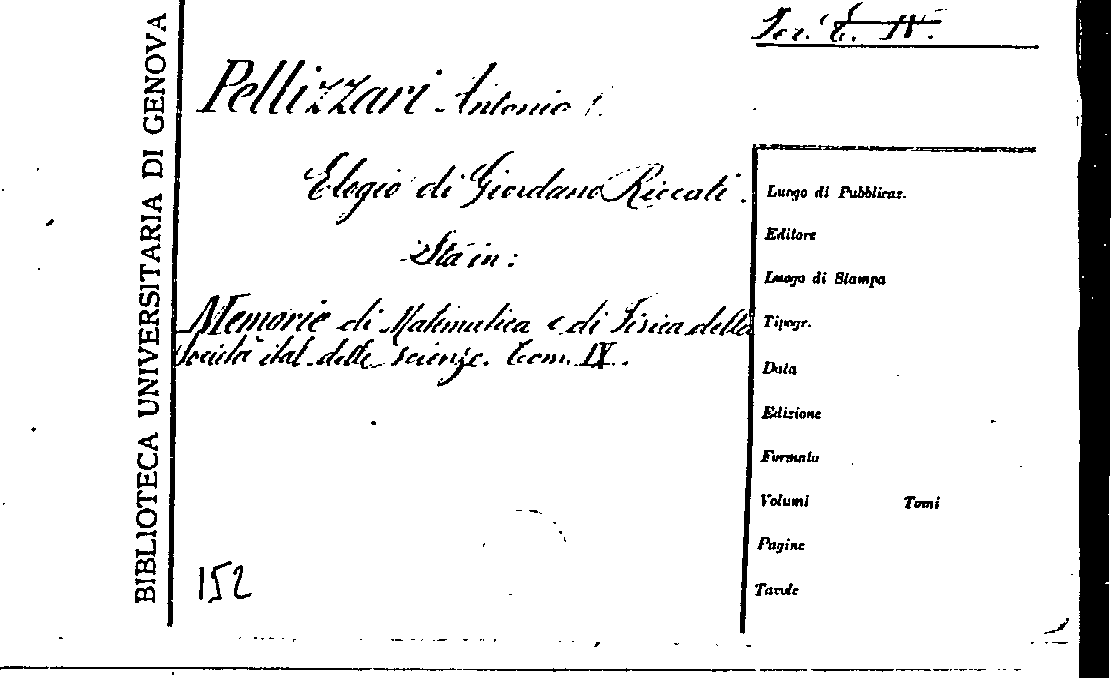 BIBLIOTECA UNIVERSITARIA DI GENOVA
Ser. E. IV.
Pellizzari Antonio
Elogio di Giordano Riccati.
Sta in:
Memorie di Matematica e di Fisica della
Società ital. delle scienze. Tom. IX.
Luogo di Pubblicaz.
Editore
Luogo di Stampa
Tipogr.
Data
Edizione
Formato
Volumi Tomi
Pagine
Tavole
152